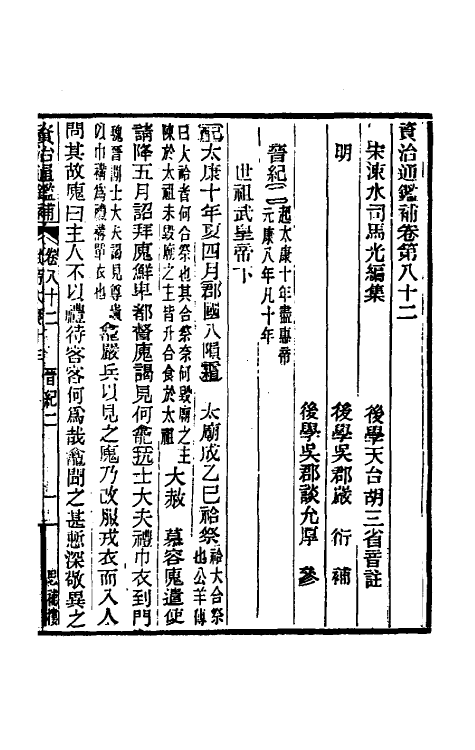 資治通鑑補卷第八十二
宋涑水司馬光編集
後學天台胡三省音註
明
後學吳郡嚴衍補
後學吳郡談允厚參
晉紀二
起太康十年盡惠帝
元康八年凡十年
世祖武皇帝下
太康十年夏四月郡國八隕霜 太廟成乙巳祫祭
祫大合祭
也公羊傳
曰大祫者何合祭也其合祭奈何毀廟之主
陳於太祖未毀廟之主皆升合食於太祖
大赦 慕容廆遣使
請降五月詔拜廆鮮卑都督廆謁見何龕
以士大夫禮巾衣到門
魏晉間士大夫謁見尊貴
以巾褠爲禮褠單衣也
龕嚴兵以見之廆乃改服戎衣而入人
問其故廆曰主人不以禮待客客何爲哉龕聞之甚慙深敬異之
資治通鑑補
卷八十二
晉紀二
一
思補樓